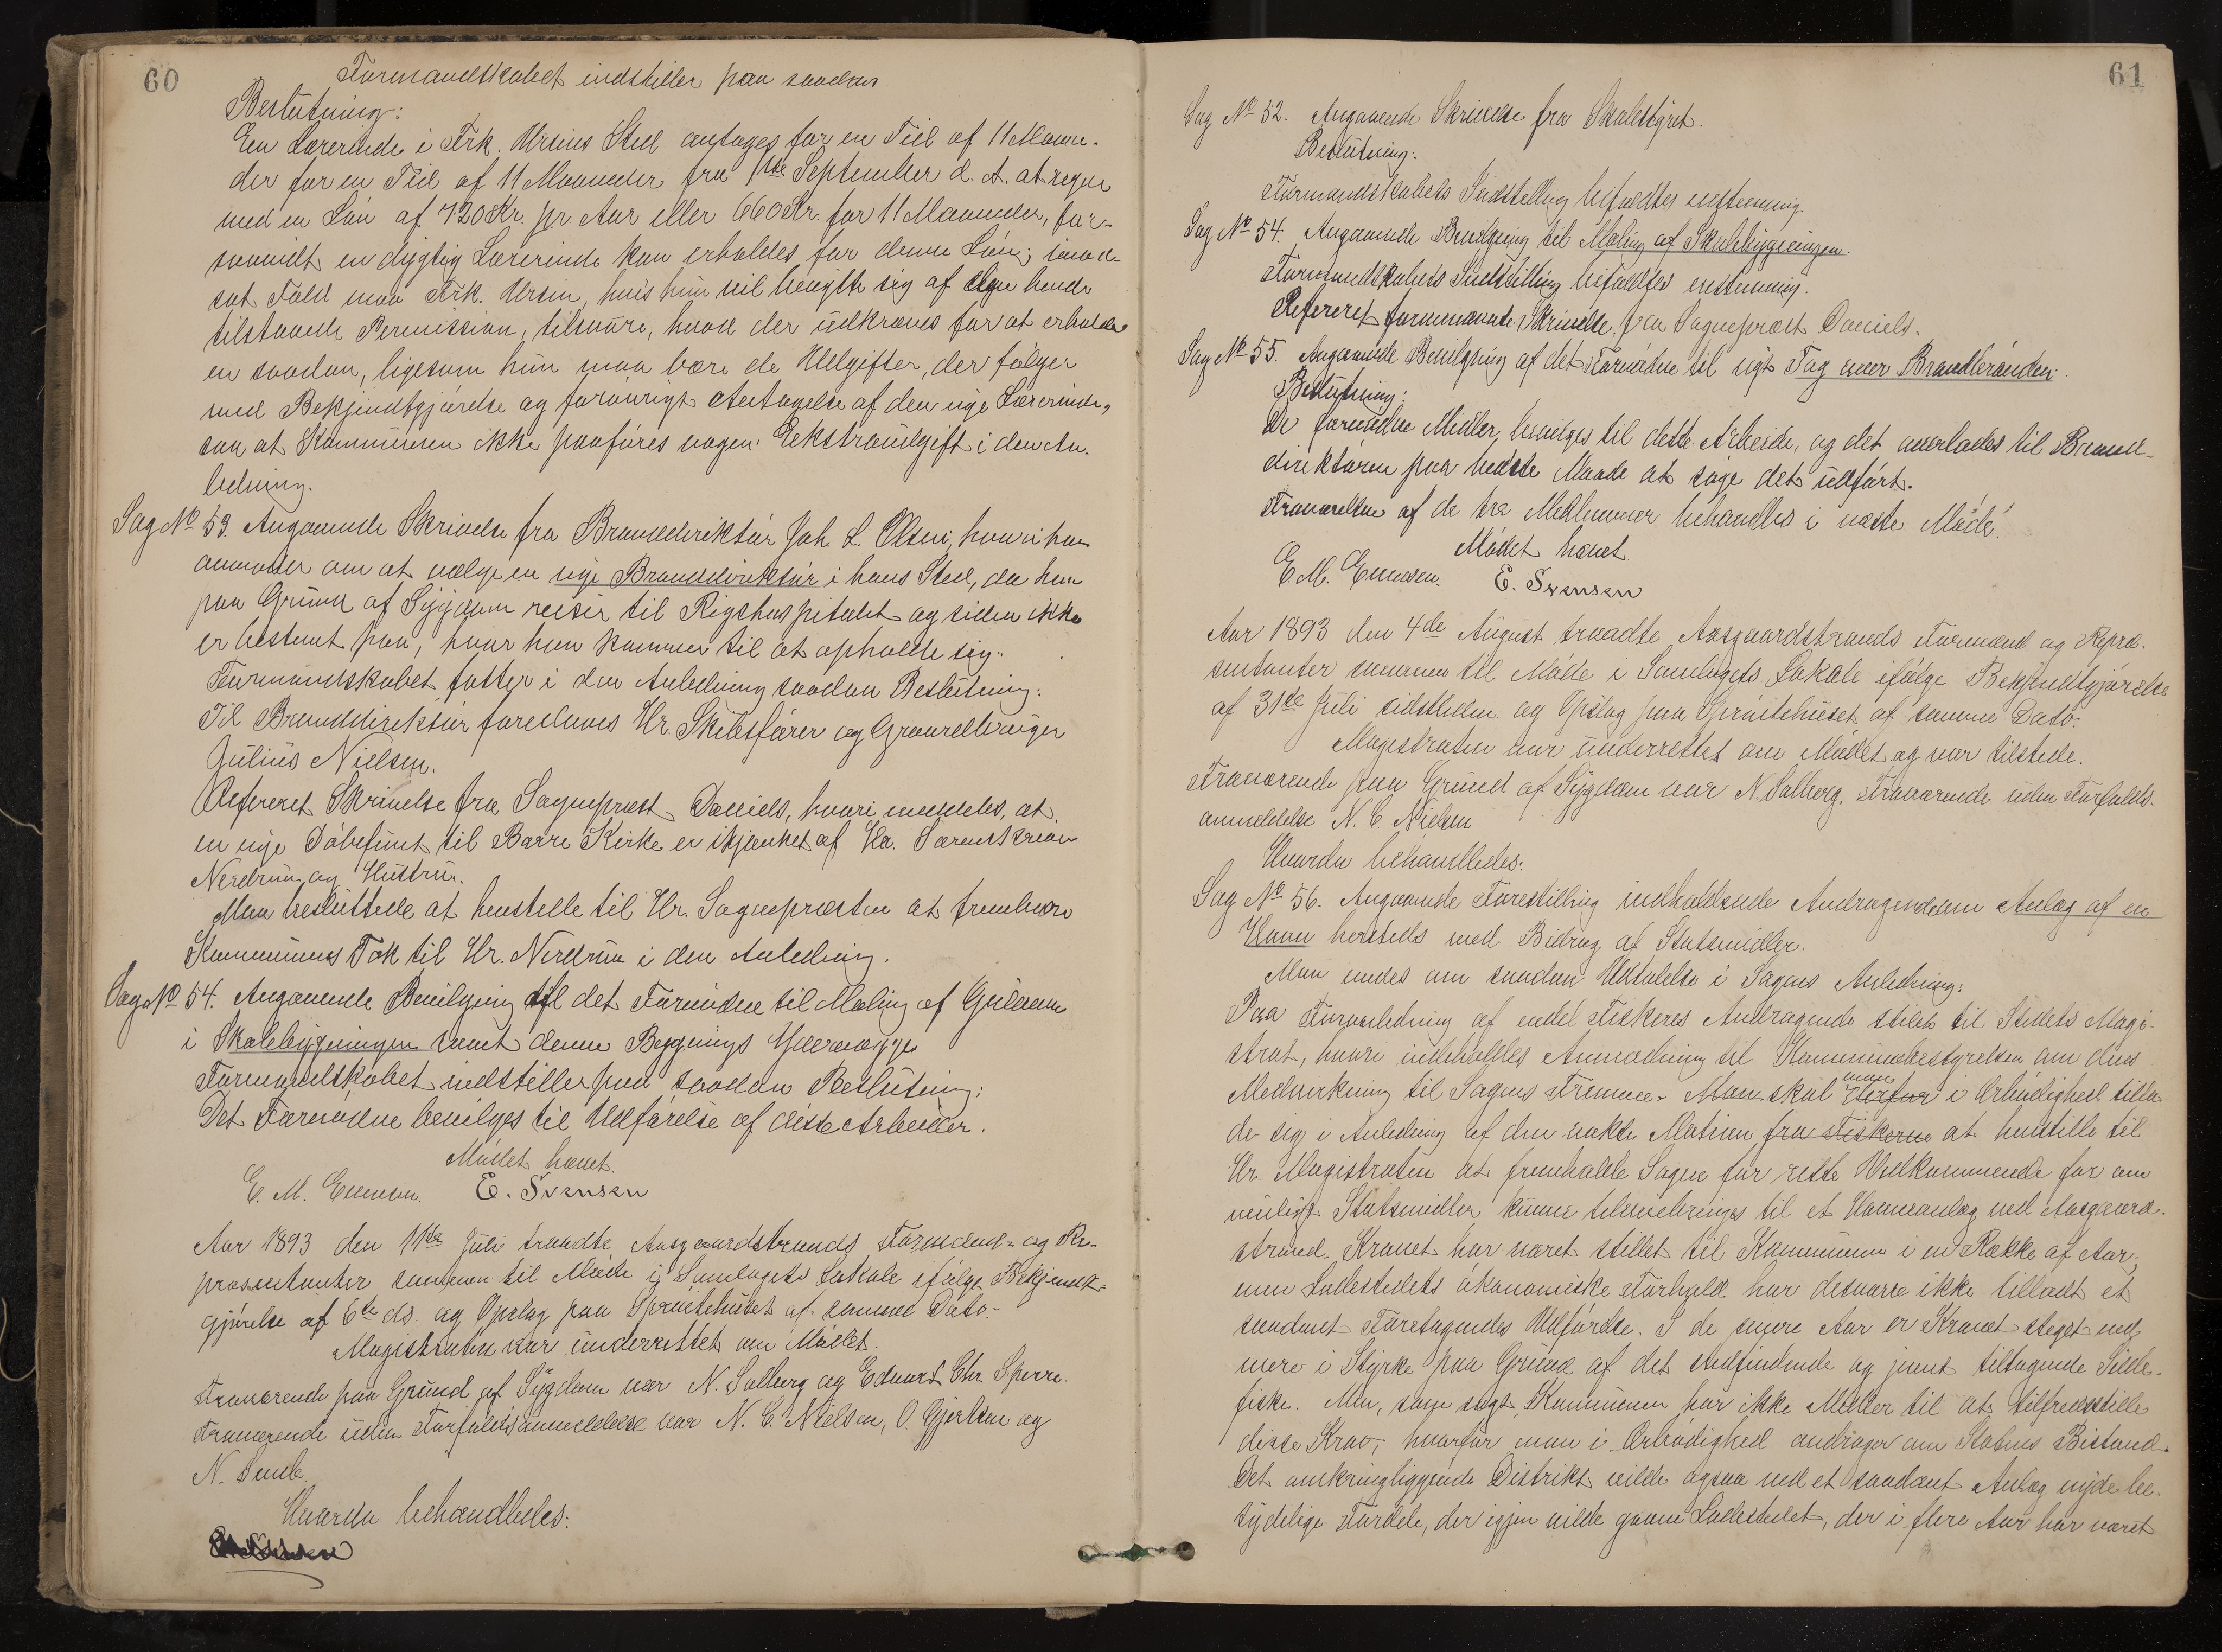 60
Formandskabet indstiller paa saadan
Beslutning:
En Lærerinde i Frk. Ursins Sted antages for en Tid af 11 Maane-
der for en Tid af 11 Maaneder fra 1ste September d. A. at regne
med en Løn af 720 Kr. pr. Aar eller 660 Kr. for 11 Maaneder, for-
saavidt en dygtig Lærerinde kan erholdes for denne Løn; imod-
sat Fald maa Frk. Ursin, hvis hun vil benytte sig af den hende
tilstaaede Permission, tilsvare, hvad der udkræves for at erholde
en saadan, ligesom hun maa bære de Udgifter, der følger
med Bekjendtgjørelse og forøvrigt Antagelse af den nye Lærerinde,
saa at Kommunen ikke paaføres nogen Ekstraudgift i den An-
ledning.
Sag No 53. Angaaende Skrivelse fra Branddirektør Joh. L. Olsen, hvori han
anmoder om at vælge en nye Branddirektør i hans Sted, da han
paa Grund af Sygdom reiser til Rigshospitalet og siden ikke
er bestemt paa, hvor han kommer til at opholde sig.
Formandskabet fatter i den Anledning saadan Beslutning:
Til Branddirektør foreslaaes Hr. Skibsfører og
Julius Nielsen.
Refereret Skrivelse fra Sognepræst Daniels, hvori meddeles, at
en nye Døbefunt til Borre Kirke er skjænket af Hr. Sorenskriver
Nerdrum og Hustru.
Man besluttede at henstelle til Hr. Sognepræsten at frembære
Kommunens Tak til Hr. Nerdrum i den Anledning.
Sag No 54. Angaaende Bevilgning til det Fornødne til Maling af Gulvene
i Skolebygningen samt denne Bygnings Ydervægge
Formandskabet indstiller paa saadan Beslutning:
Det Fornødne bevilges til Udførelse af disse Arbeider.
Mødet hævet.
E. M. Evensen. E. Svensen
Aar 1893 den 11te Juli traadte Aasgaardstrands Formænd- og Re-
præsentanter sammen til Møde i Samlagets Lokale ifølge Bekjendt-
gjørelse af 6te ds. og Opslag paa Sprøitehuset af samme Dato.
Magistraten var underrettet om Mødet.
Fraværende paa Grund af Sygdom var N. Solberg og Edvard Chr. Sperre.
Fraværende uden Forfaldsanmeldelse var N. C. Nielsen, O. Gjertsen og
N. Semb.
Hvorda behandledes:
61
Sag No 52. Angaaende Skrivelse fra Skolestyret.
Beslutning:
Formandskabets Indstelling bifaldtes enstemmig.
Sag No 54. Angaaende Bevilgning til Maling af Skolebygningen.
Formandskabets Indstilling bifaldtes enstemmig.
Refereret fornævnte Skrivelse fra Sognepræst Daniels.
Sag No 55. Angaaende Bevilgning af det Fornødne til nyt Tag over Brandbrønden.
Beslutning:
De fornødne Midler bevilges til dette Arbeide, og det overlades til Brand-
direktøren paa bedste Maade at søge det udført.
Fraværelsen af de tre Medlemmer behandles i næste Møde.
Mødet hævet
E. M. Evensen. E. Svensen
Aar 1893 den 4de August traadte Aasgaardstrands Formænd og Repræ-
sentanter sammen til Møde i Samlagets Lokale ifølge Bekjendtgjørelse
af 31te Juli sidstleden og Opslag paa Sprøitehuset af samme Dato.
Magistraten var underrettet om Mødet og var tilstede.
Fraværende paa Grund af Sygdom var N. Solberg. Fraværende uden Forfalds-
anmeldelse N. C. Nielsen
Hvorda behandledes:
Sag No 56. Angaaende Forestilling indholdende Andragende om Anlæg af en
Havn hersteds med Bidrag af Statsmidler.
Man enedes om saadan Udtalelse i Sagens Anledning:
Paa Foranledning af endel Fiskeres Andragende stilet til Stedets Magi-
strat, hvori indeholdes Anmodning til Kommunebestyrelsen om dens
Medvirkning til Sagens Fremme. Man skal Herfor man i Ærbødighed tilla-
de sig i Anledning af den vakte Motion fra Fiskerne at henstille til
Hr. Magistraten at fremholde Sagen for rette Vedkommende for om
muligt Statsmidler kunne tilveiebringes til et Havneanlæg ved Aasgaard-
strand. Kravet har været stillet til Kommunen i en Række af Aar,
men Ladestedets økonomiske Forhold har desværre ikke tilladt et
saadant Foretagendes Udførelse. I de senere Aar er Kravet steget med
mere i Styrke paa Grund af det stedfindende og jævnt tiltagende Silde-
fiske. Men, som sagt, Kommunen har ikke Midler til at tilfredsstille
disse Krav, hvorfor man i Ærbødighed andrager om Statens Bistand.
Det omkringliggende Distrikt vilde ogsaa ved et saadant Anlæg nyde be-
tydelige Fordele, der igjen vilde gavne Ladestedet, der i flere Aar har været